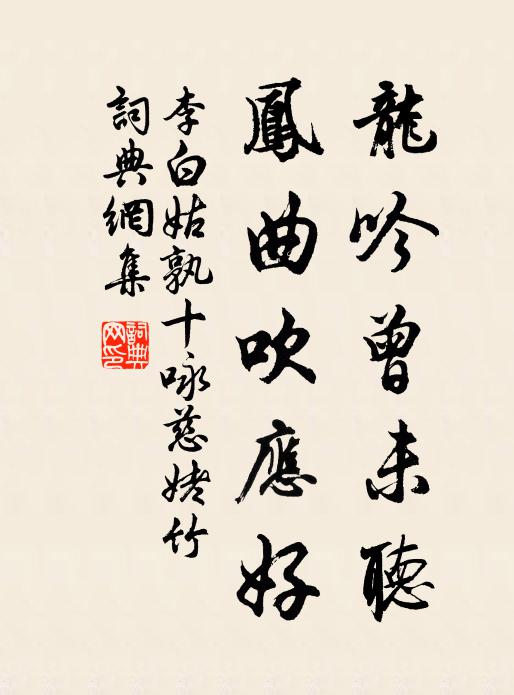 龍吟曾未聽
鳳曲吹應好
李白姑孰十咏慈姥竹
詞典網集
詞典網印